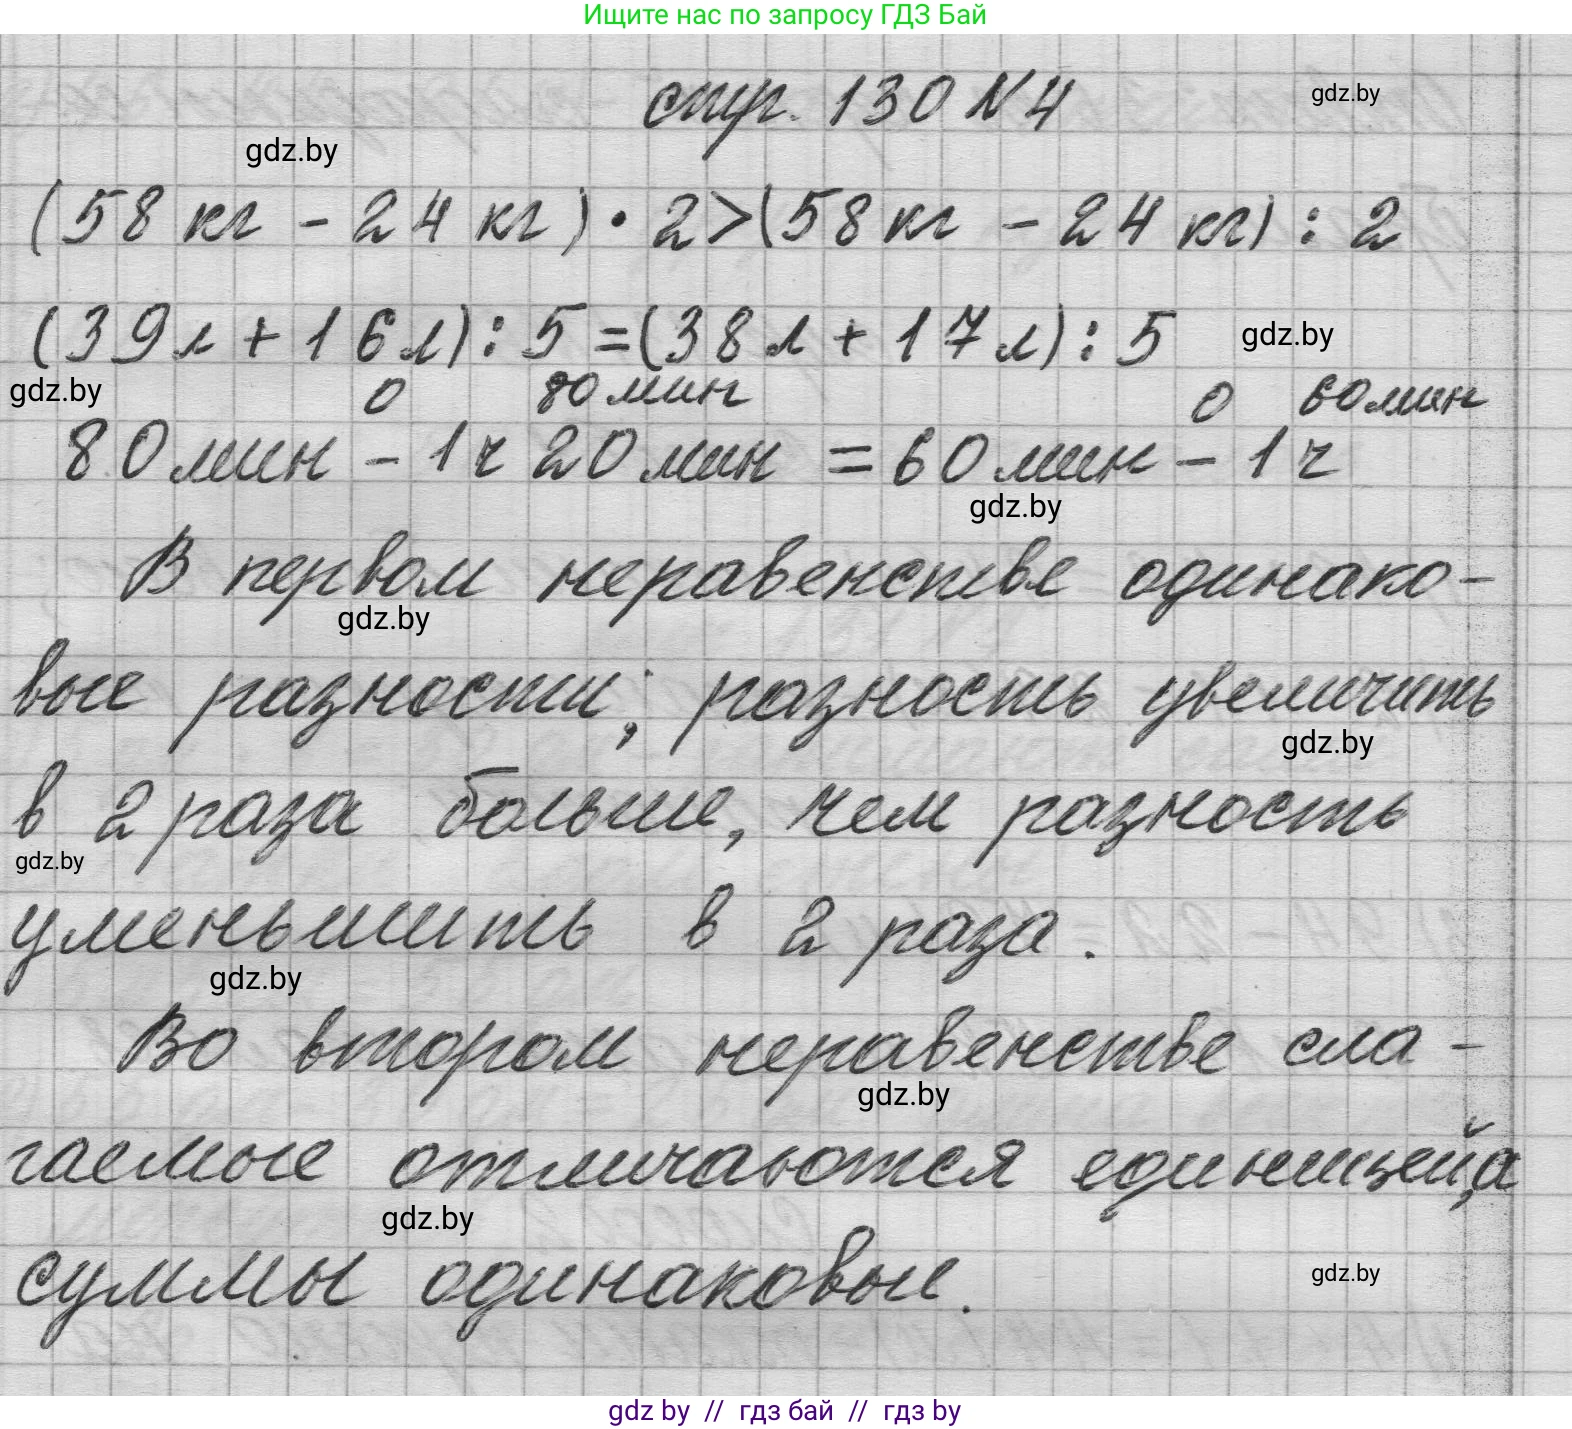 Ищите нас по запросу ГДЗ Бай
стр. 130 N 4
gdz.by
gdz.by
(58 кг - 24 кг) · 2>(58 кг - 24 кг) : 2
(39 л + 16 л) : 5 =(38 л + 17 л) : 5
gdz.by
gdz.by
0 80 мин 0 60 мин
80 мин - 1 ч 20 мин = 60 мин - 1 ч
gdz.by
В первом неравенстве одинако-
gdz.by
вые разности; разность увеличить
gdz.by
в 2 раза больше, чем разность
gdz.by
уменьшить в 2 раза.
gdz.by
Во втором неравенстве сла-
gdz.by
гаемые отличаются единицей, а
gdz.by
суммы одинаковые.
gdz.by
gdz by // гдз бай // гдз by